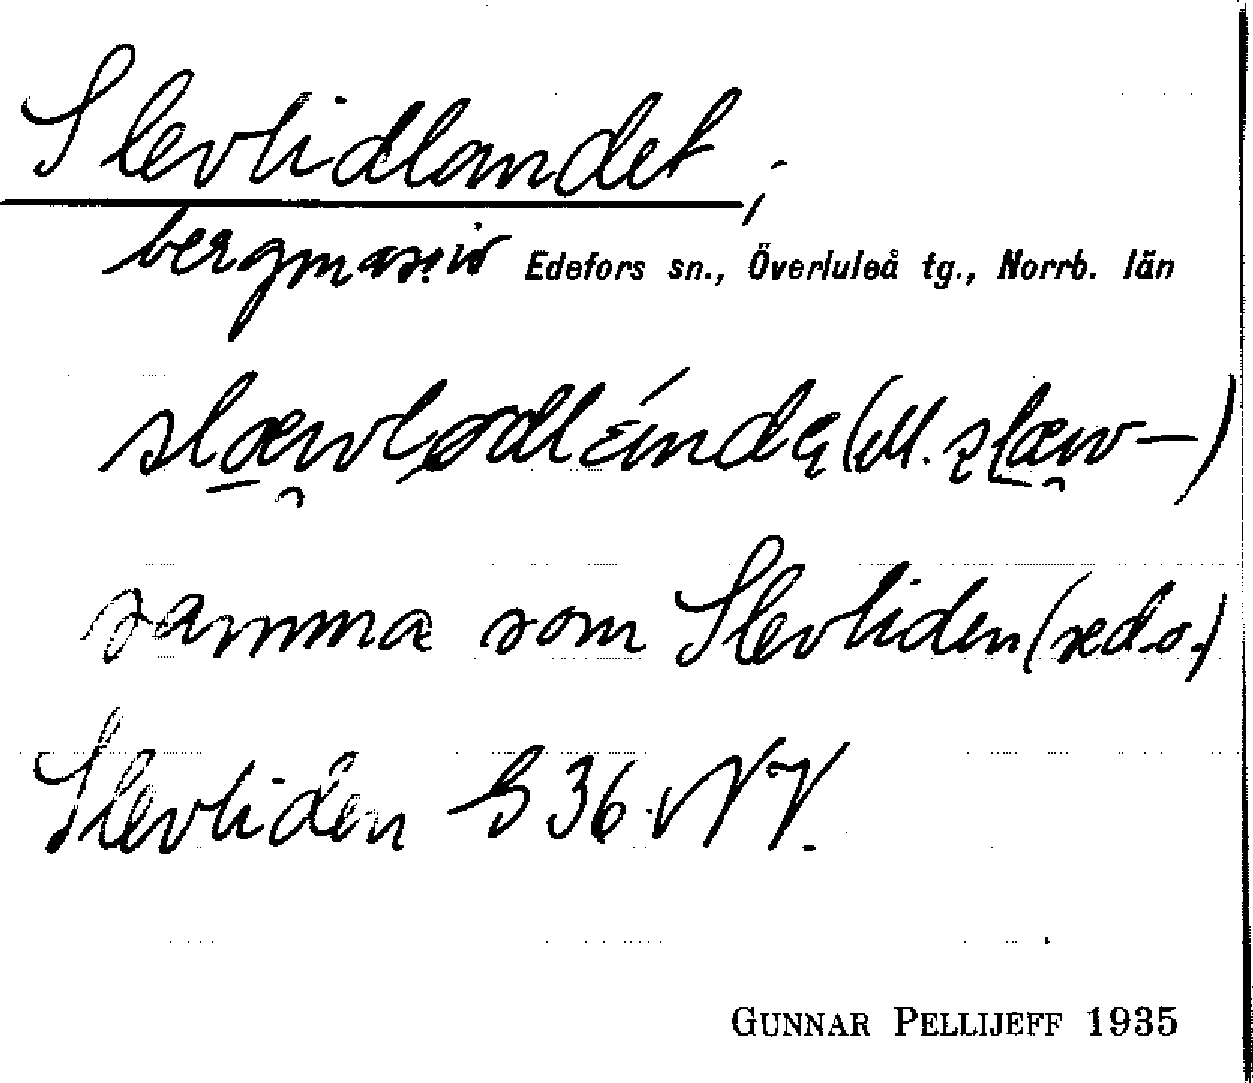 Slevlidlandet;
bergmassiv Edefors sn., Överluleå tg., Norrb. län
(ell.
samma som Slevliden (sed.o.)
Slevliden S 36 v NV.
GUNNAR PELLIJEFF 1935